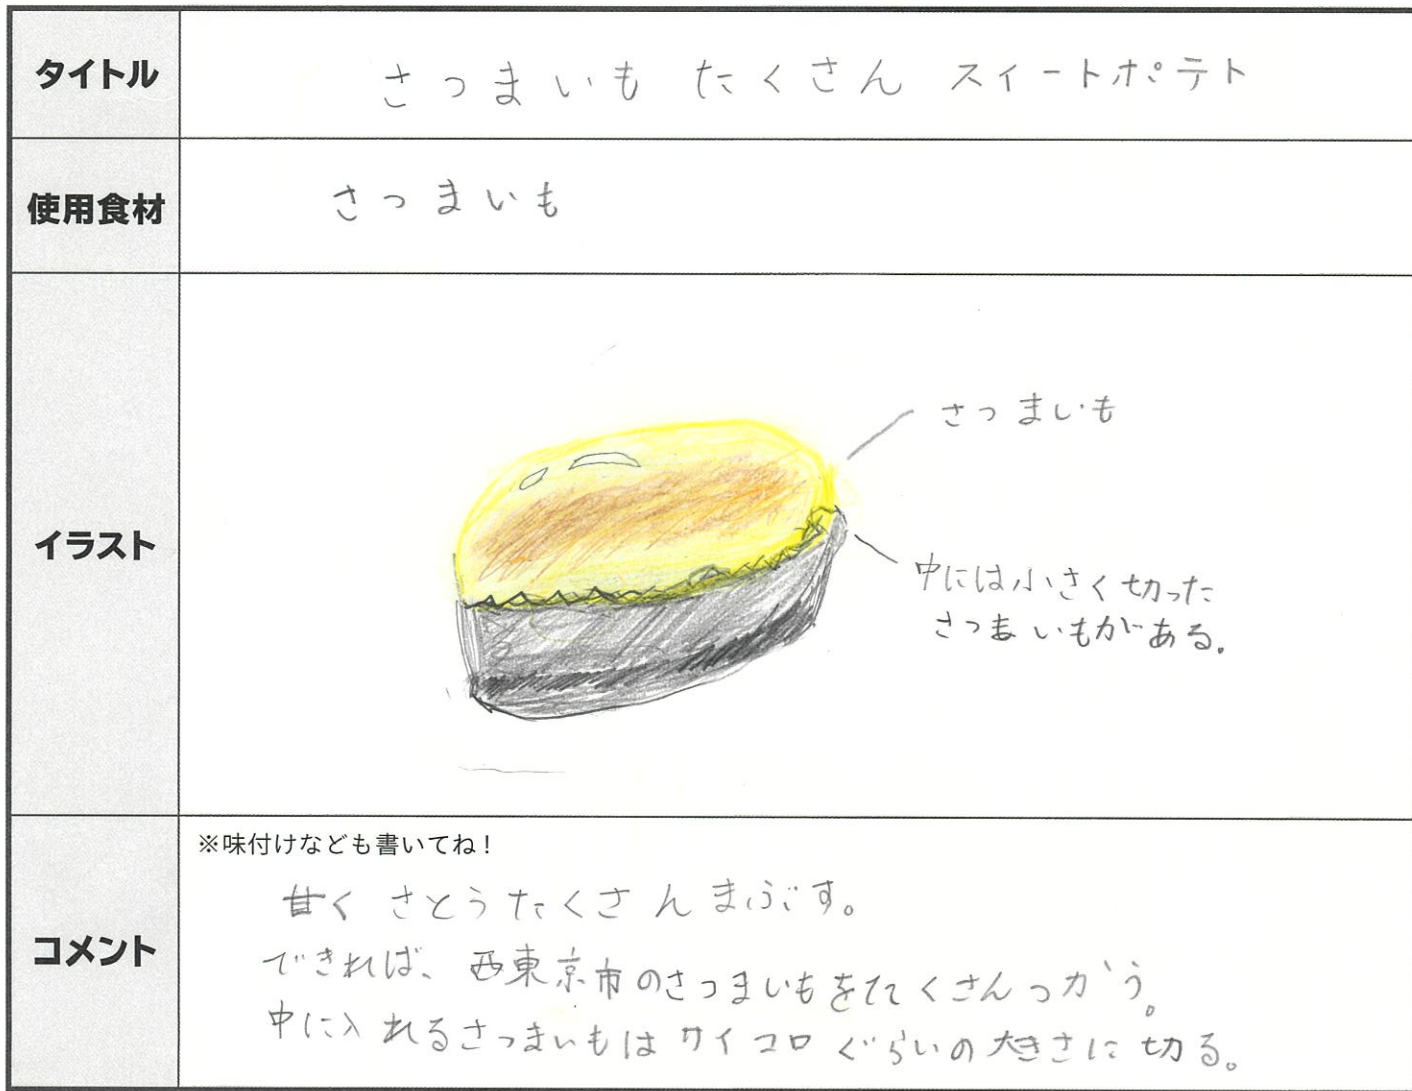 タイトル
さつまいも たくさん スイートポテト
使用食材
さつまいも
イラスト
さつまいも
中には小さく切った
さつまいもがある。
コメント
※味付けなども書いてね！
甘く さとうたくさんまぶす。
できれば、西東京市のさつまいもをたくさんつかう。
中に入れるさつまいもはサイコロぐらいの大きさに切る。